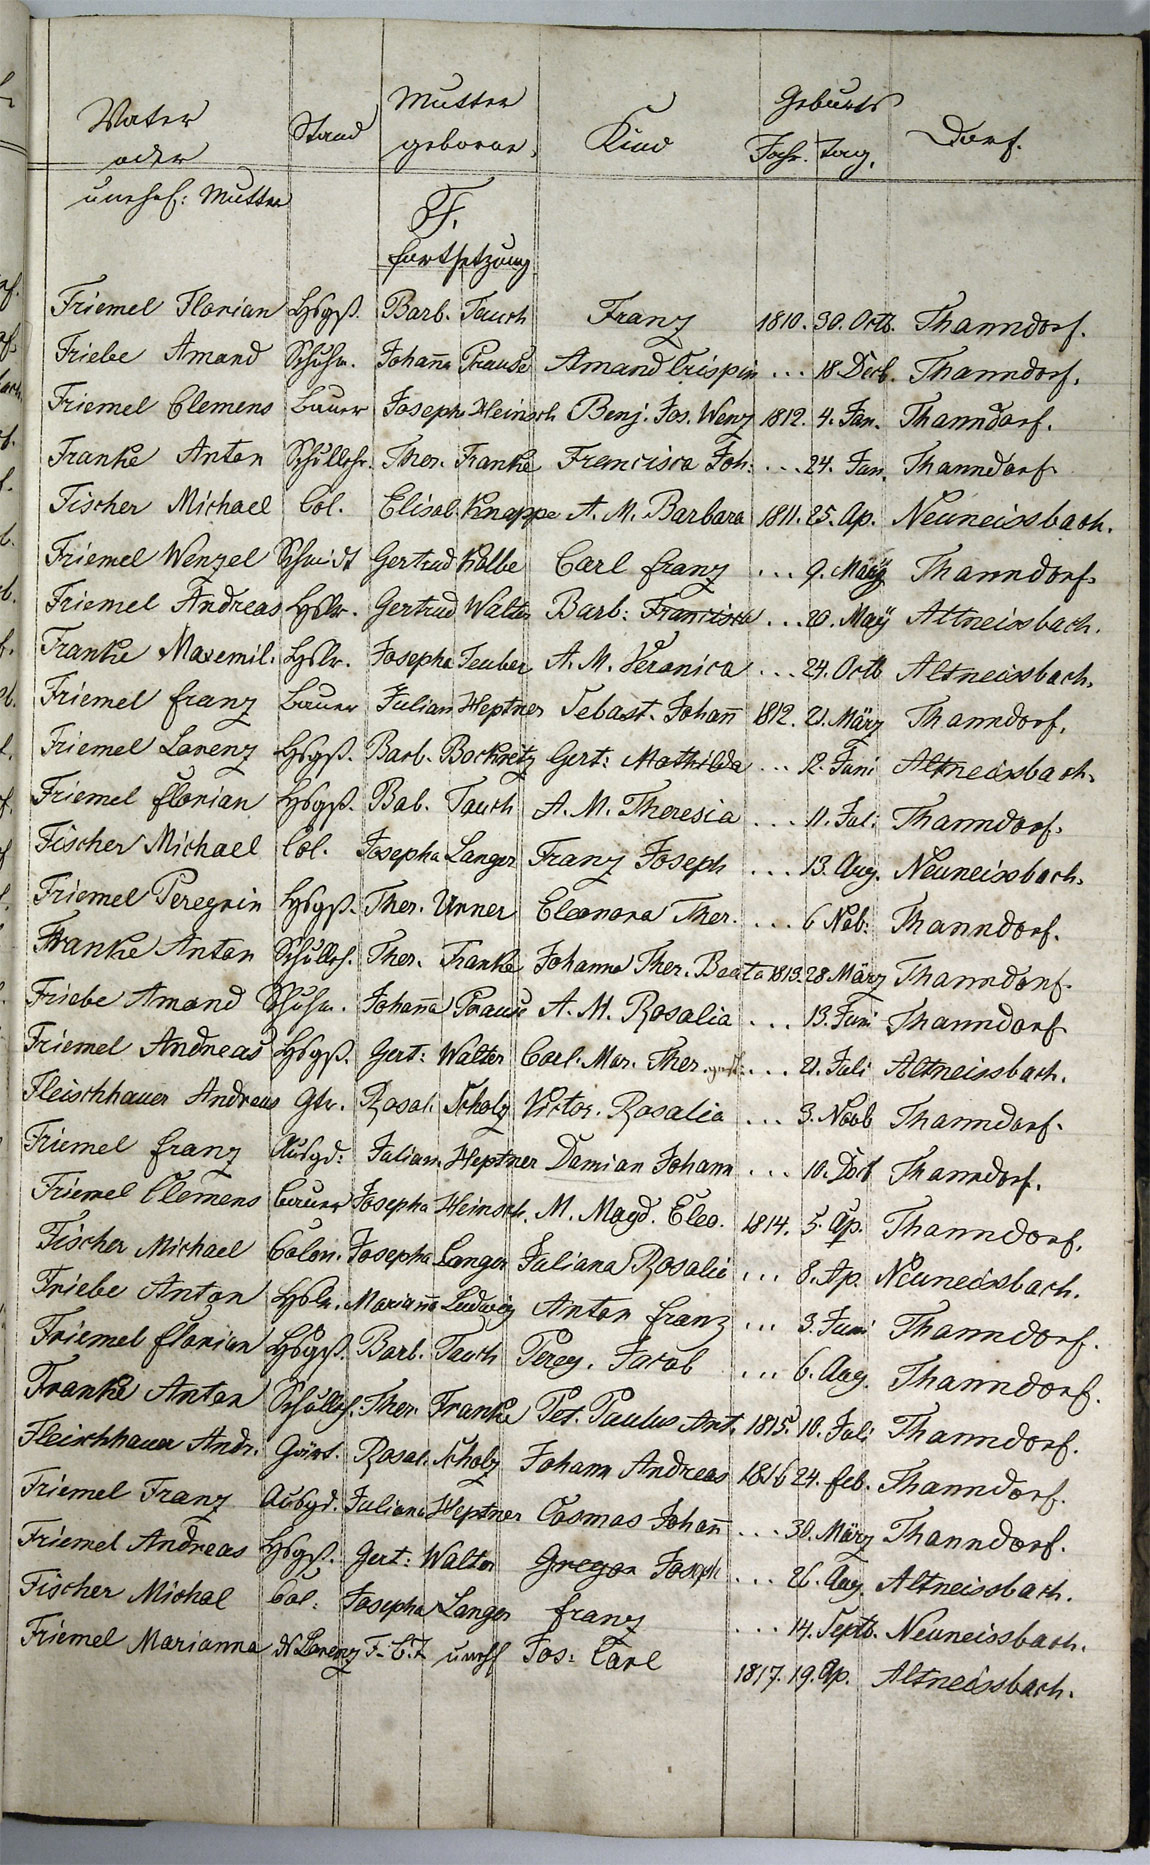 Vater oder unehel: Mutter Stand Mutter geborne. Kind Geburts Jahr. Tag. Dorf.
F.
Fortsetzung
Friemel Florian Hsgß. Barb. Tauch Franz 1810. 30. Octb. Thanndorf.
Friebe Amand Schuhm. Johanna Prause Amand Crispin ... 18 Decb. Thanndorf.
Friemel Clemens Bauer Josepha Heinsch Benj. Jos. Wenz 1812. 4. Jan. Thanndorf.
Franke Anton Schullehr. Ther. Franke Francisca Joh: ... 24. Jan. Thanndorf.
Fischer Michael Col. Elisab. Knappe A. M. Barbara 1811. 25. Ap. Neuneissbach.
Friemel Wenzel Schmidt Gertrud Kolbe Carl Franz ... 9. Maÿ Thanndorf.
Friemel Andreas Hslr. Gertrud Walter Barb: Francisca ... 20. Maÿ Altneissbach.
Franke Maxemil. Hslr. Josepha Teuber A. M. Veronica ... 24. Octb Altneissbach.
Friemel Franz Bauer Julian Heptner Sebast. Johann 1812. 21. März Thanndorf.
Friemel Lorenz Hsgß. Barb. Bockwitz Gert: Mathilda ... 12. Juni Altneissbach.
Friemel Florian Hsgß. Bab. Tauch A. M. Theresia ... 11. Juli Thanndorf.
Fischer Michael Col. Josepha Langer Franz Joseph ... 13. Aug. Neuneissbach.
Friemel Peregrin Hsgß. Ther. Urner Eleonora Ther. ... 6 Nob: Thanndorf.
Franke Anton Schulleh. Ther. Franke Johanna Ther. Beata 1813. 28 März Thanndorf.
Friebe Amand Schuhm. Johanna Prause A. M. Rosalia ... 13. Juni Thanndorf.
Friemel Andreas Hsgß. Gert: Walter Carl. Mar. Ther. ... 21. Juli Altneissbach.
Fleischhauer Andreas Gtr. Rosal. Scholz Victor. Rosalia ... 3. Novb Thanndorf.
Friemel Franz Ausgd: Julian. Heptner Damian Johann ... 10. Dcb Thanndorf.
Friemel Clemens Bauer Josepha Heinsch. M. Magd. Eleo. 1814. 5. Ap. Thanndorf.
Fischer Michael Colon. Josepha Langer Juliana Rosalia ... 8. Ap. Neuneissbach.
Friebe Anton Hslr. Marianna Ludwig Anton Franz ... 3. Juni Thanndorf.
Friemel Florian Hsgß. Barb. Tauch Pereg. Jacob ... 6. Aug. Thanndorf.
Franke Anton Schulleh. Ther. Franke Pet. Paulus Ant. 1815. 10. Juli Thanndorf.
Fleischhauer Andr. Gärt. Rosal. Scholz Johann Andreas 1816 24. Feb. Thanndorf.
Friemel Franz Ausgd. Juliana Heptner Cosmas Johann ... 30. März Thanndorf.
Friemel Andreas Hsgß. Gert: Walter Gregor Joseph ... 26. Aug. Altneissbach.
Fischer Michal Col. Josepha Langer Franz ... 14. Septb. Neuneissbach.
Friemel Marianna Lorenz F. unehl Jos: Carl 1817. 19. Ap. Altneissbach.